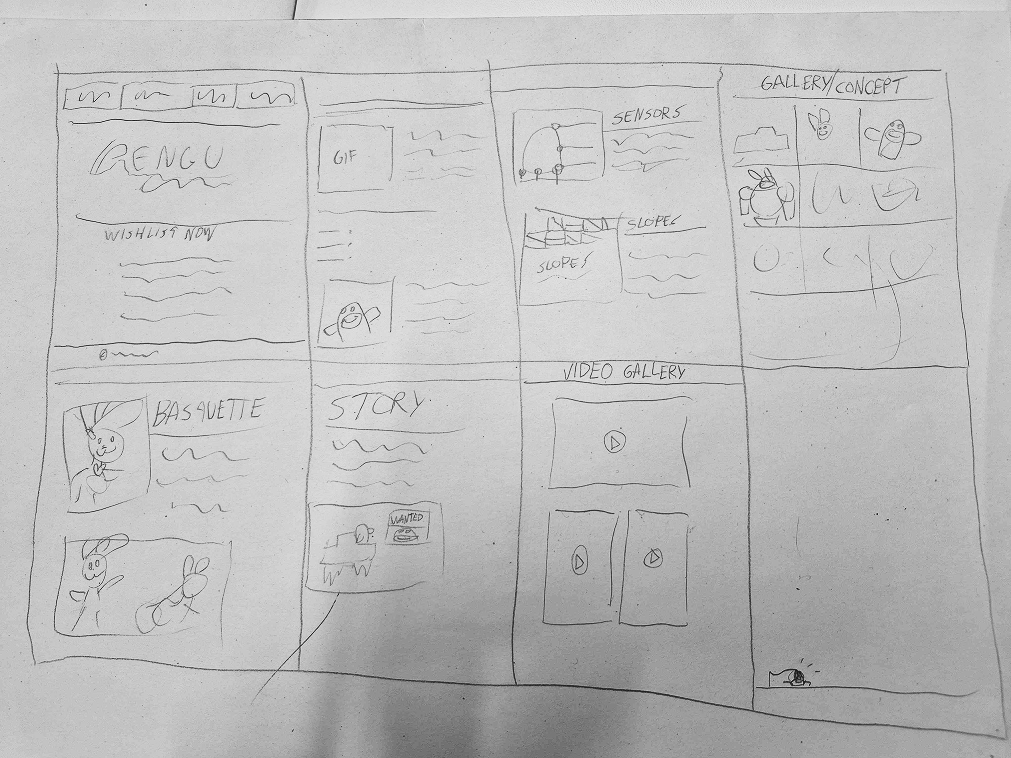 RENGU
WISHLIST NOW
GIF
SENSORS
SLOPES
SLOPES
GALLERY/CONCEPT
BASQUETTE
STORY
WANTED
VIDEO GALLERY